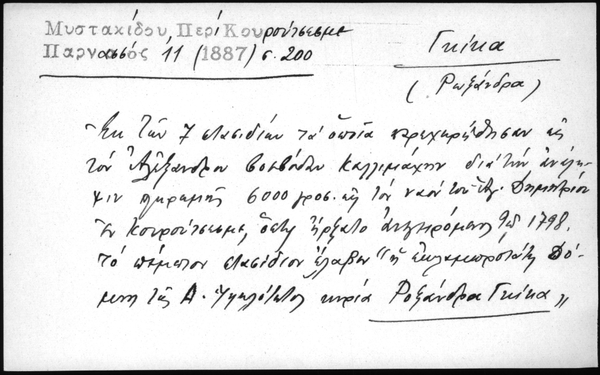 Μυστακίδου, Περί Κουρούτσεσμε
Παρνασσός 11 (1887) σ. 200
Γκίκα
(Ρωξάνδρα)
Ἐκ τῶν 7 στασιδίων τά ὁποῖα παρεχωρήθησαν εἰς
τόν Ἀλέξανδρον Βοεβόδαν Καλλιμάχην διά τήν ἀνέγερ
σιν πληρωμῆς 6000 γροσ. εἰς τόν ναόν τοῦ Ἁγ. Δημητρίου
ἐν Κουρούτσεσμε, ὅστις ἤρξατο ἀνεγειρόμενος τῷ 1798.
τό πέμπτον στασίδιον ἔλαβεν "ἡ ἐκλαμπροτάτη Δό-
μνη τῆς Α. Ὑψηλότητος κυρία Ρωξάνδρα Γκίκα"